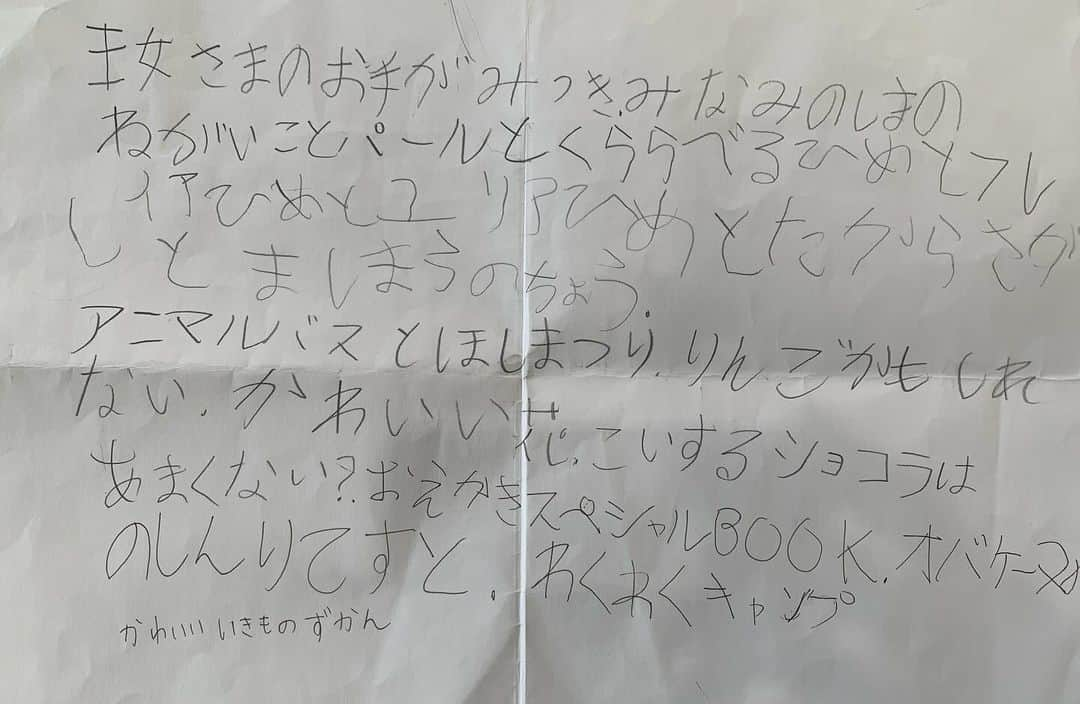 王女さまのお手がみつき.みなみのしまの
ねがいことパールとくららべるひめとフレ
イアひめとユリアひめとたからさが
しとまほうのちょう.
アニマルバスとほしまつり.りんごかもしれ
ない.かわいい花.こいするショコラは
あまくない?おえかきスペシャルBOOK.オバケーヌ
のしんりてすと.わくわくキャンプ
かわいいいきものずかん